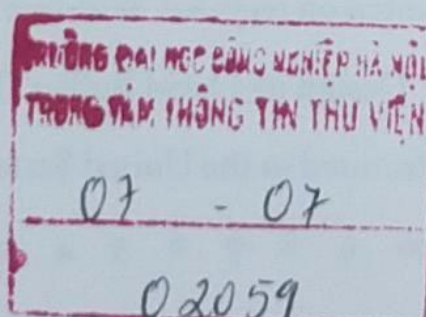 TRƯỜNG ĐẠI HỌC CÔNG NGHIỆP HÀ NỘI
TRUNG TÂM THÔNG TIN THƯ VIỆN
07 - 07
02059